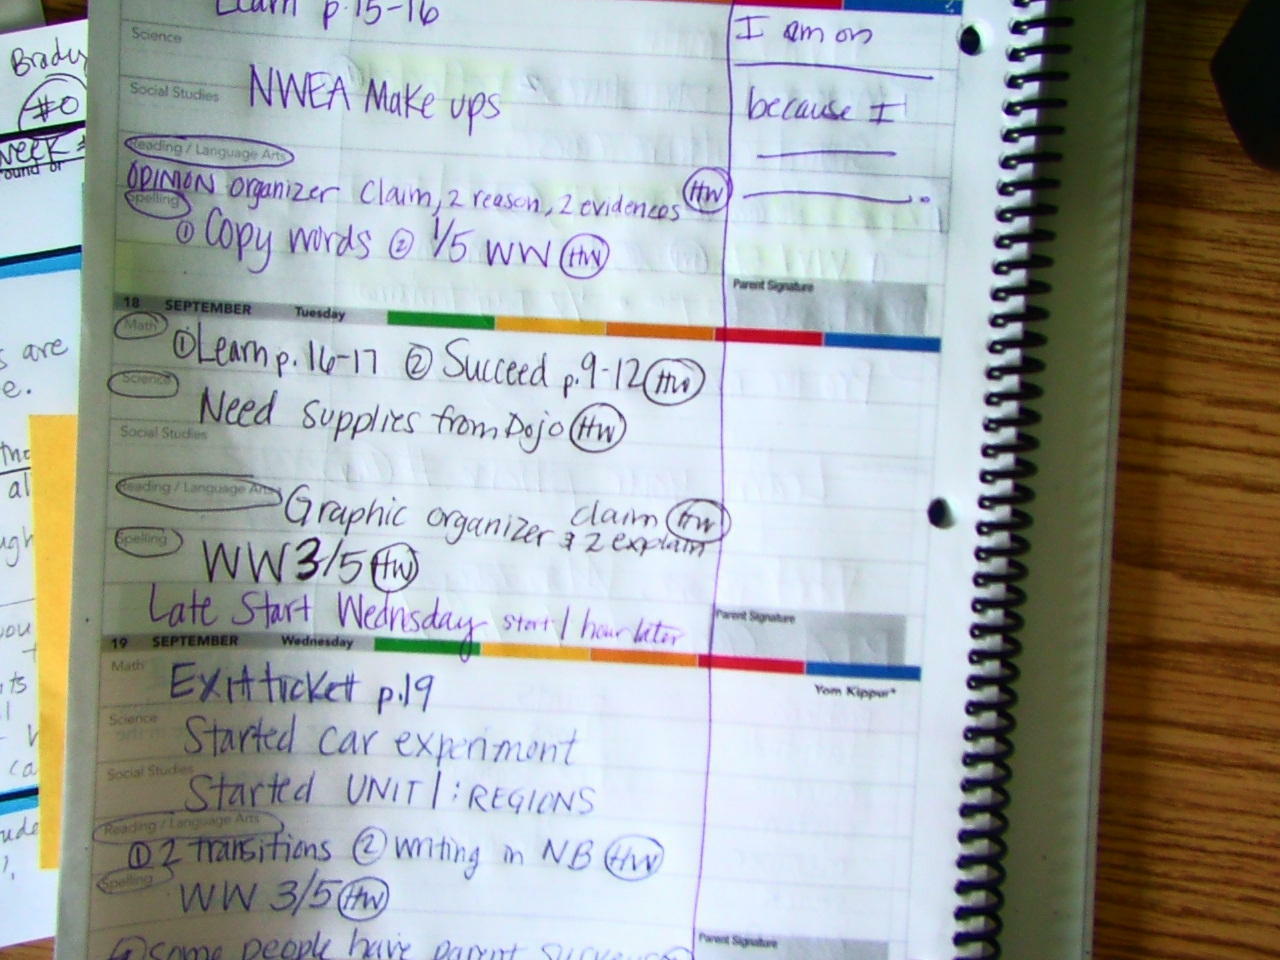 Learn p.15-16
I am on
Science
because I
Social Studies
NWEA Make ups
Reading / Language Arts
OPINION organizer claim, 2 reason, 2 evidences HW
Spelling
① Copy words ② 1/5 WW HW
Parent Signature
18 SEPTEMBER Tuesday
Math
① Learn p. 16-17 ② Succeed p.9-12 HW
Science
Need supplies from Dojo HW
Social Studies
Reading / Language Arts
Graphic organizer claim HW
& 2 explain
Spelling
WW 3/5 HW
Late Start Wednesday start 1 hour later
Parent Signature
19 SEPTEMBER Wednesday
Math
Exit ticket p.19
Yom Kippur*
Science
Started car experiment
Social Studies
Started UNIT 1: REGIONS
Reading / Language Arts
① 2 transitions ② writing in NB HW
Spelling
WW 3/5 HW
some people have parent surveys
Parent Signature
Brady
#0
week
are
e.
al
you
ca